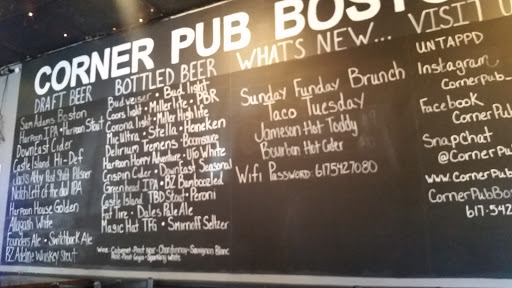 CORNER PUB BOSTO
DRAFT BEER
Sam Adams Boston
Harpoon IPA • Harpoon Stout
Downeast Cider
Castle Island Hi-Def
Jack's Abby Post Shift Pilsner
Notch Left of the dial IPA
Harpoon House Golden
Allagash White
Founders Ale • Switchback Ale
BZ Adeline Whiskey Stout
BOTTLED BEER
Budweiser • Bud light
Coors light • Miller lite • PBR
Corona light • Miller High life
Mic Ultra • Stella • Heineken
Delirium Tremens • Boomsauce
Harpoon Hoppy Adventure • Ufo White
Crispin Cider • Downeast Seasonal
Greenhead IPA • BZ Bamboozled
Castle Island TBD Stout • Peroni
Fat Tire • Dales Pale Ale
Magic Hat TFG • Smirnoff Seltzer
Wine - Cabernet • Pinot noir • Chardonnay • Sauvignon Blanc
Pinot Grigio • Sparkling white
WHATS NEW...
Sunday Funday Brunch
Taco Tuesday
Jameson Hot Toddy
Bourbon Hot Cider
Wifi Password: 6175427080
VISIT U
UNTAPPD
Instagram
Cornerpub_
Facebook
CornerPub
SnapChat
@CornerP
www.CornerPub
CornerPubBos
617-54